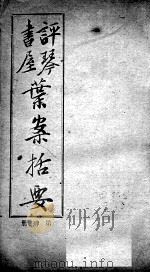 評琴書屋
葉案括要